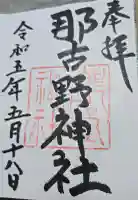 奉拝
那古野神社
令和五年五月十八日